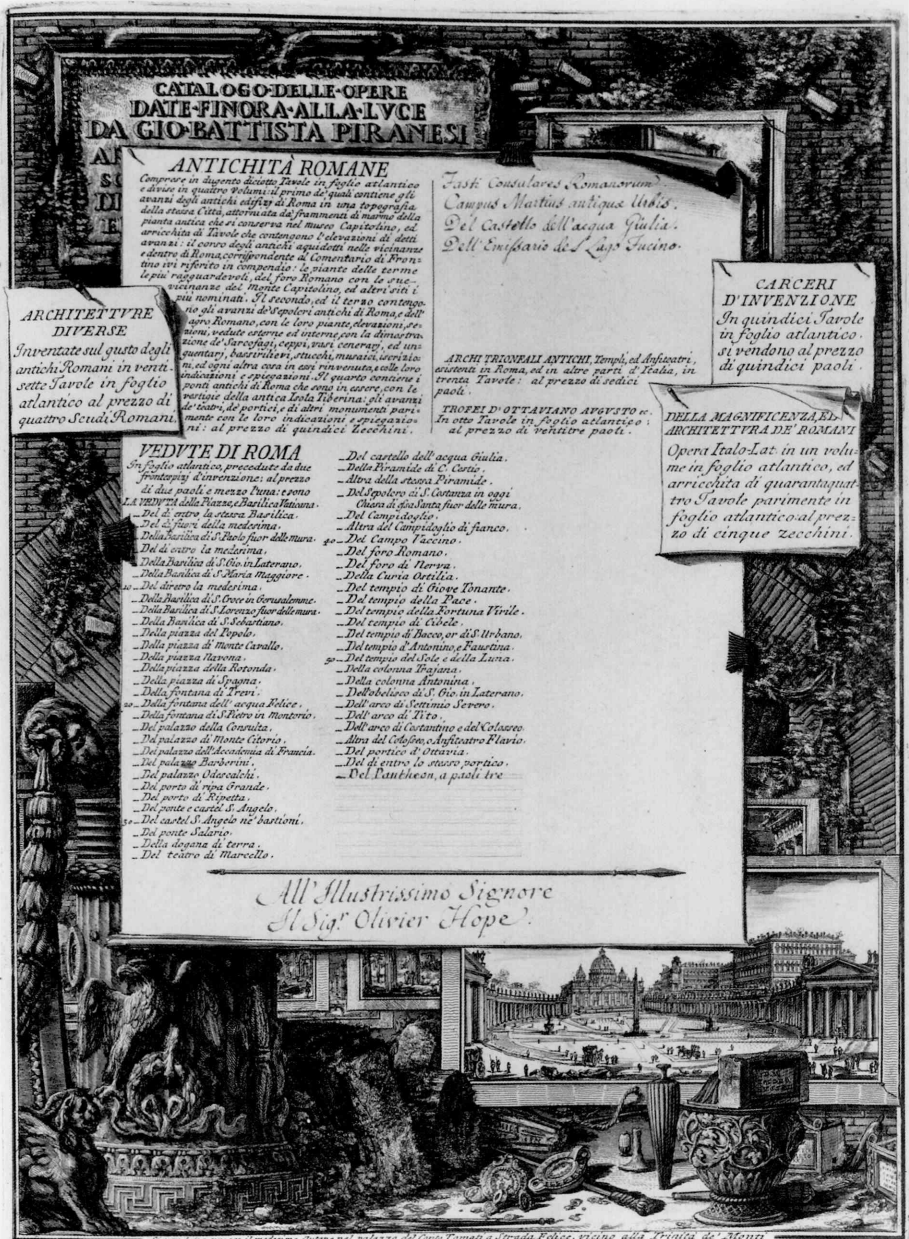 CATALOGO·DELLE·OPERE
DATE·FINORA·ALLA·LVCE
DA GIO·BATTISTA PIRANESI
ANTICHITÀ ROMANE
Comprese in dugento diciotto Tavole in foglio atlantico
e divise in quattro Volumi: il primo de' quali contiene gli
avanzi degli antichi edifizj di Roma in una topografia
della stessa Città, attorniata da' frammenti di marmo della
pianta antica che si conserva nel museo Capitolino, ed
arricchita di Tavole che contengono l'elevazioni di detti
avanzi: il corso degli antichi aquidotti nelle vicinanze
e dentro di Roma, corrispondente al Comentario di Fron-
tino ivi riferito in compendio: le piante delle terme
le più ragguardevoli, del foro Romano con le sue
vicinanze del monte Capitolino, ed altri siti i
più nominati. Il secondo, ed il terzo contengo-
no gli avanzi de' Sepolcri antichi di Roma, e dell'
agro Romano, con le loro piante, elevazioni, se-
zioni, vedute esterne ed interne, con la dimostra-
zione de' Sarcofagi, ceppi, vasi cenerarj, ed un-
guentarj, bassirilievi, stucchi, musaici, iscrizio-
ni, ed ogni altra cosa in essi rinvenuta, e colle loro
indicazioni e spiegazioni. Il quarto contiene i
ponti antichi di Roma che sono in essere, con le
vestigie della antica Isola Tiberina: gli avanzi
de' teatri, de' portici, e di altri monumenti pari-
mente con le loro indicazioni e spiegazio-
ni: al prezzo di quindici Zecchini.
Fasti Consulares Romanorum
Campus Martius antiquæ Urbis.
Del Castello dell'acqua Giulia.
Dell'Emissario del Lago Fucino.
ARCHI TRIONFALI ANTICHI, Templi, ed Anfiteatri,
esistenti in Roma, ed in altre parti d'Italia, in
trenta Tavole: al prezzo di sedici
paoli.
TROFEI D'OTTAVIANO AVGVSTO ec.
In otto Tavole in foglio atlantico:
al prezzo di ventitre paoli.
ARCHITETTVRE
DIVERSE
Inventate sul gusto degli
antichi Romani in venti-
sette Tavole in foglio
atlantico al prezzo di
quattro Scudi Romani.
CARCERI
D'INVENZIONE
In quindici Tavole
in foglio atlantico.
si vendono al prezzo
di quindici paoli.
DELLA MAGNIFICENZA, ED
ARCHITETTVRA DE' ROMANI
Opera Italo-Lat. in un volu-
me in foglio atlantico, ed
arricchita di quarantaquat-
tro Tavole parimente in
foglio atlantico: al prez-
zo di cinque zecchini.
VEDVTE DI ROMA
In foglio atlantico, precedute da due
frontespizj d'invenzione: al prezzo
di due paoli e mezzo l'una: e sono
LA VEDUTA della Piazza, e Basilica Vaticana.
_Del di entro la stessa Basilica.
_Del di fuori della medesima.
_Della Basilica di S. Paolo fuor delle mura.
_Del di entro la medesima.
_Della Basilica di S. Gio. in Laterano.
_Della Basilica di S. Maria Maggiore.
10_Del dietro la medesima.
_Della Basilica di S. Croce in Gerusalemme.
_Della Basilica di S. Lorenzo fuor delle mura.
_Della Basilica di S. Sebastiano.
_Della piazza del Popolo.
_Della piazza di Monte Cavallo.
_Della piazza Navona.
_Della piazza della Rotonda.
_Della piazza di Spagna.
_Della fontana di Trevi.
20_Della fontana dell'acqua Felice.
_Della fontana di S. Pietro in Montorio.
_Del palazzo della Consulta.
_Del palazzo di Monte Citorio.
_Del palazzo dell'Accademia di Francia.
_Del palazzo Barberini.
_Del palazzo Odescalchi.
_Del porto di ripa Grande.
_Del porto di Ripetta.
_Del ponte e castel S. Angelo.
30_Del castel S. Angelo ne' bastioni.
_Del ponte Salario.
_Della dogana di terra.
_Del teatro di Marcello.
_Del castello dell'acqua Giulia.
_Della Piramide di C. Cestio.
_Altra della stessa Piramide.
_Del Sepolcro di S. Costanza in oggi
Chiesa di essa Santa fuor delle mura.
_Del Campidoglio.
_Altra del Campidoglio di fianco.
40_Del Campo Vaccino.
_Del foro Romano.
_Del foro di Nerva.
_Della Curia Ostilia.
_Del tempio di Giove Tonante.
_Del tempio della Pace.
_Del tempio della Fortuna Virile.
_Del tempio di Cibele.
_Del tempio di Bacco, or di S. Urbano.
_Del tempio d'Antonino, e Faustina.
50_Del tempio del Sole e della Luna.
_Della colonna Trajana.
_Della colonna Antonina.
_Dell'obelisco di S. Gio. in Laterano.
_Dell'arco di Settimio Severo.
_Dell'arco di Tito.
_Dell'arco di Costantino e del Colosseo
_Altra del Colosseo, o Anfiteatro Flavio.
_Del portico d'Ottavia.
_Del di entro lo stesso portico.
_Del Pantheon, a paoli tre
All'Illustrissimo Signore
Il Sigr. Olivier Hope.
nel palazzo del Conte Tomati a Strada Felice, vicino alla Trinità de' Monti